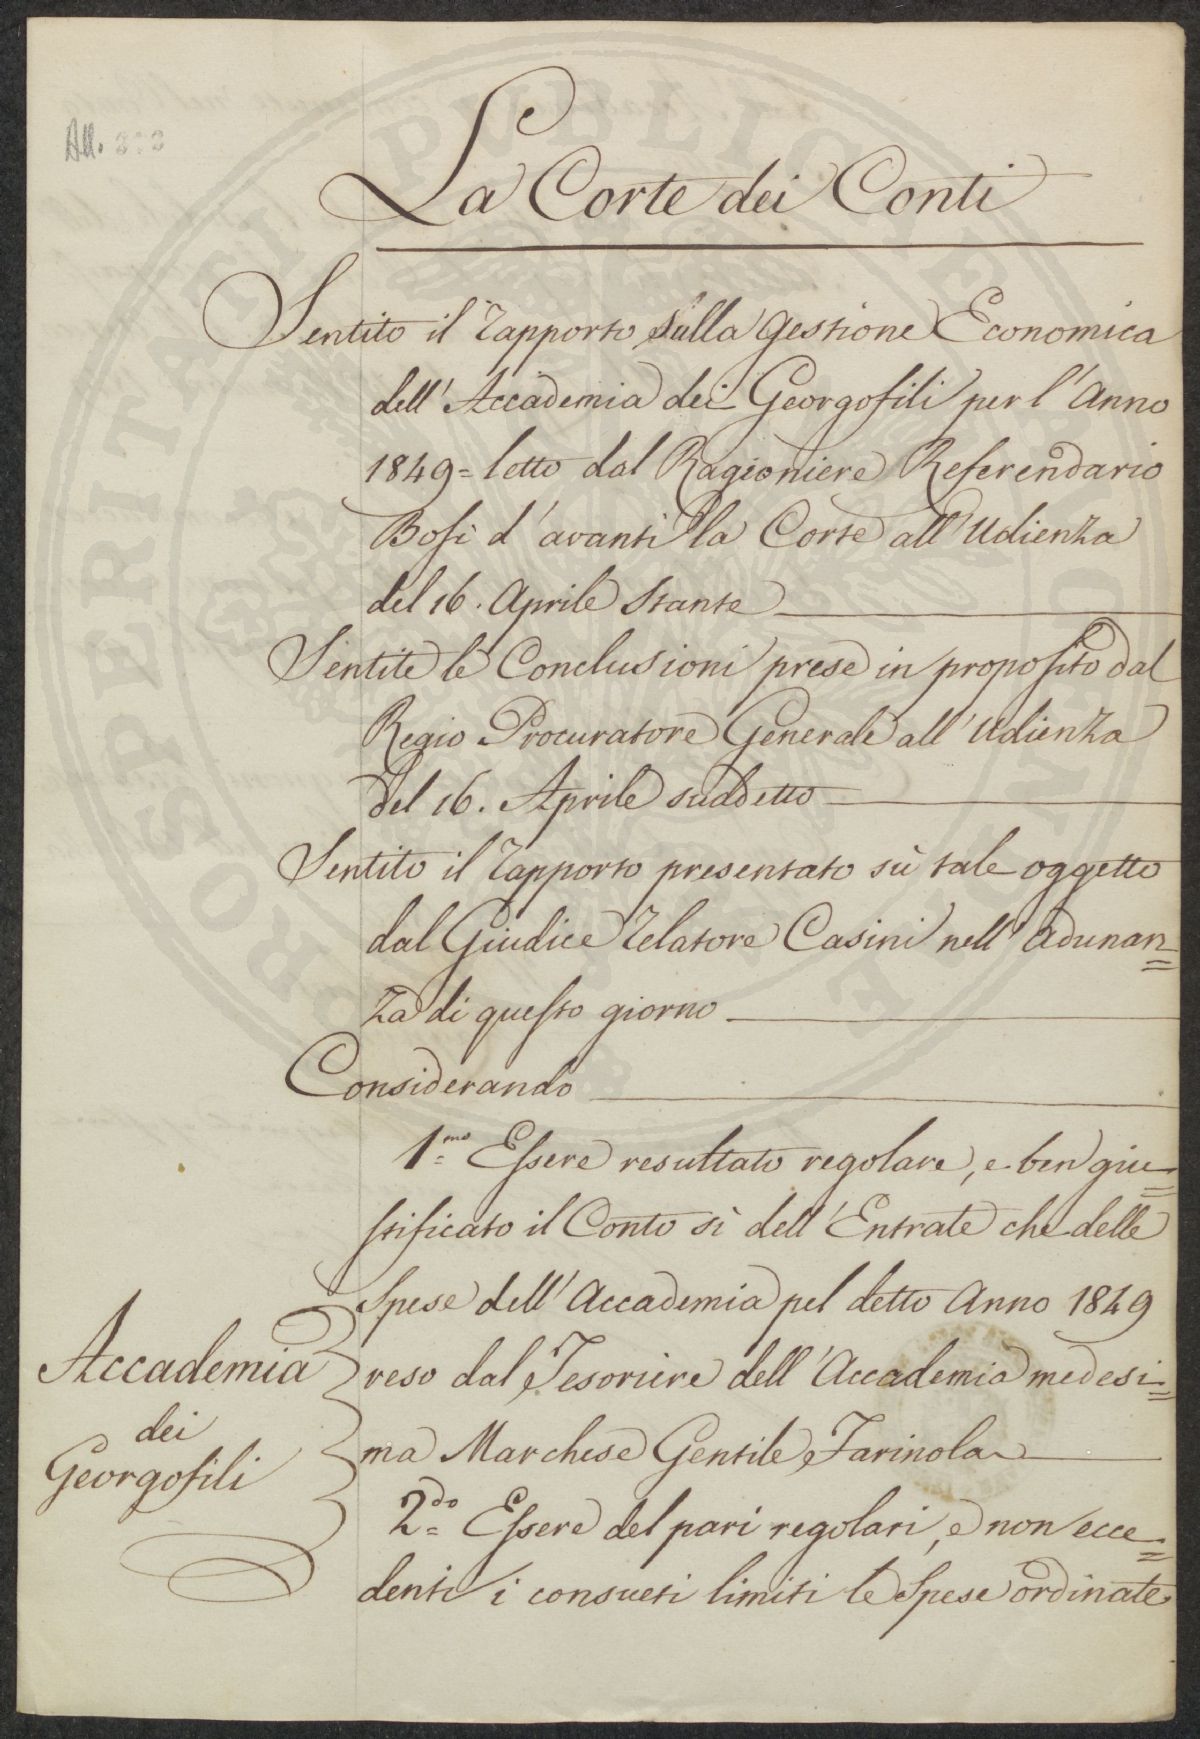 All.
La Corte dei Conti
Sentito il rapporto sulla gestione Economica
dell'Accademia dei Georgofili per l'Anno
1849 = letto dal Ragioniere Referendario
Bosi d'avanti la Corte all'Udienza
del 16. Aprile stante
Sentite le Conclusioni prese in proposito dal
Regio Procuratore Generale all'Udienza
del 16. Aprile suddetto
Sentito il rapporto presentato sù tale oggetto
dal Giudice relatore Casini nell'adunan=
za di questo giorno
Considerando
1.mo Essere resultato regolare, e ben giu=
stificato il Conto sì dell'Entrate che delle
Spese dell'Accademia pel detto Anno 1849
reso dal Tesoriere dell'Accademia medesi=
ma Marchese Gentile Farinola
2.do Essere del pari regolari, e non ecce=
denti i consueti limiti le Spese ordinate
Accademia
dei
Georgofili
PROSPERITATI PUBLICAE